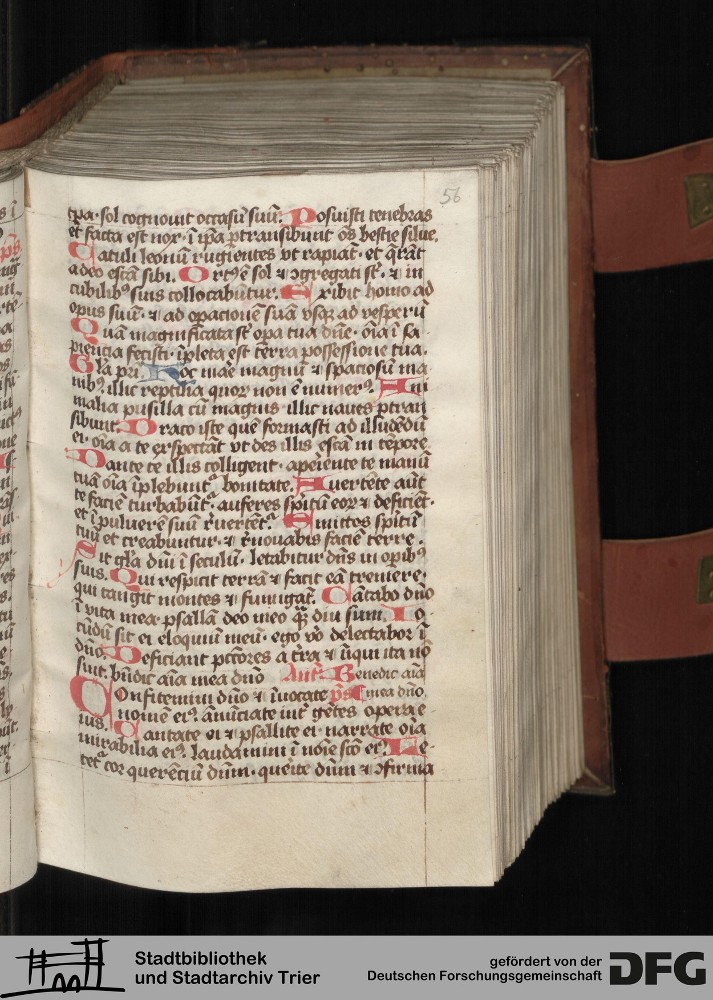 56
tpa · sol cognouit occasū suū. Posuisti tenebras
et facta est nox · ī ipa ptransibunt oēs bestie silue.
Catuli leonū rugientes vt rapiāt · et q̄rāt
a deo escā sibi. Ortꝰ ē sol ⁊ ꝯgregati st̄ · ⁊ in
cubilibꝰ suis collocabūtur. Exibit homo ad
opus suū · ⁊ ad opacionē suā vsqꝫ ad vesperū
Quā magnificata st̄ opa tua dn̄e · oīa ī sa
piencia fecisti · īpleta est terra possessione tua.
Gl̄a pri. Hoc mare magnū ⁊ spaciosū ma
nibꝰ · illic reptilia quoꝝ non ē numerꝰ. Ani
malia pusilla cū magnis illic naues ptran
sibunt. Draco iste quē formasti ad illudēdū
ei · oīa a te exspectāt vt des illis escā in tēpore.
Dante te illis colligent · aperiente te manū
tuā oīa īplebunt bonitate. Auertente aūt
te faciē turbabūt · auferes spitū eoꝝ ⁊ deficiēt ·
et ī puluerē suū reuertēt. Emittes spitū
tuū et creabuntur · ⁊ renouabis faciē terre.
Sit gl̄a dn̄i ī seculū · letabitur dn̄s in opibꝰ
suis. Qui respicit terrā ⁊ facit eā tremere ·
qui tangit montes ⁊ fumigāt. Cātabo dn̄o
ī vita mea psallā deo meo qm̄ diu sum. Io
cūdū sit ei eloquiū meū · ego vo delectabor ī
dn̄o. Deficiant pctores a tr̄a ⁊ īiqui ita nō
sint · bn̄dic aīa mea dn̄o Ant. Benedic aīa
Confitemini dn̄o ⁊ īuocate ps mea dn̄o
nomē eiꝰ · ānūciate int̄ gētes opera e
ius. Cantate ei ⁊ psallite ei narrate oīa
mirabilia eiꝰ · laudamini ī noīe scō eiꝰ. Le
tet cor querēciū dn̄m · querite dn̄m ⁊ ꝯfirma
Stadtbibliothek
und Stadtarchiv Trier
gefördert von der
Deutschen Forschungsgemeinschaft DFG